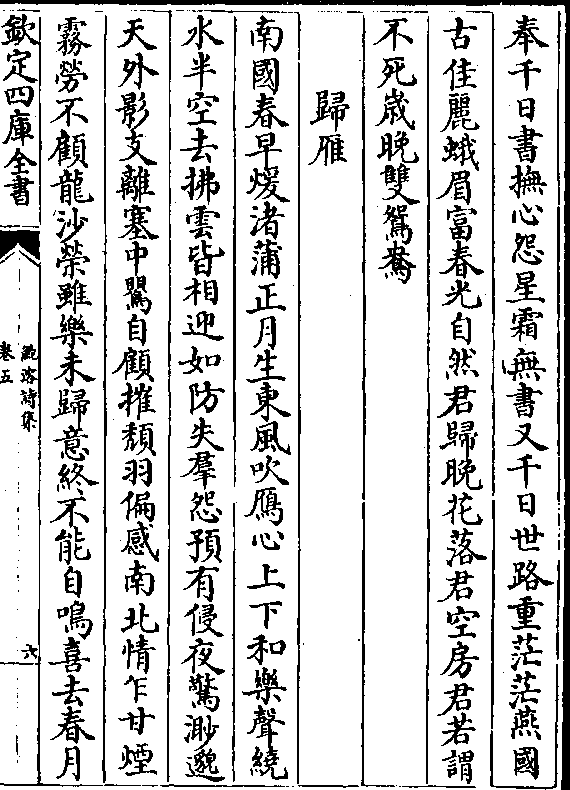 奉千日書撫心怨星霜無書又千日世路重茫茫燕國
古佳麗蛾眉富春光自然君歸晚花落君空房君若謂
不死歳晚雙鴛鴦
歸雁
南國春早煖渚蒲正月生東風吹鴈心上下和樂聲繞
水半空去拂雲皆相迎如防失羣怨預有侵夜驚渺邈
天外影支離塞中驚自顧摧頹羽偏感南北情乍甘煙
霧勞不顧龍沙榮雖樂未歸意終不能自鳴喜去春月
欽定四庫全書
卷五
六